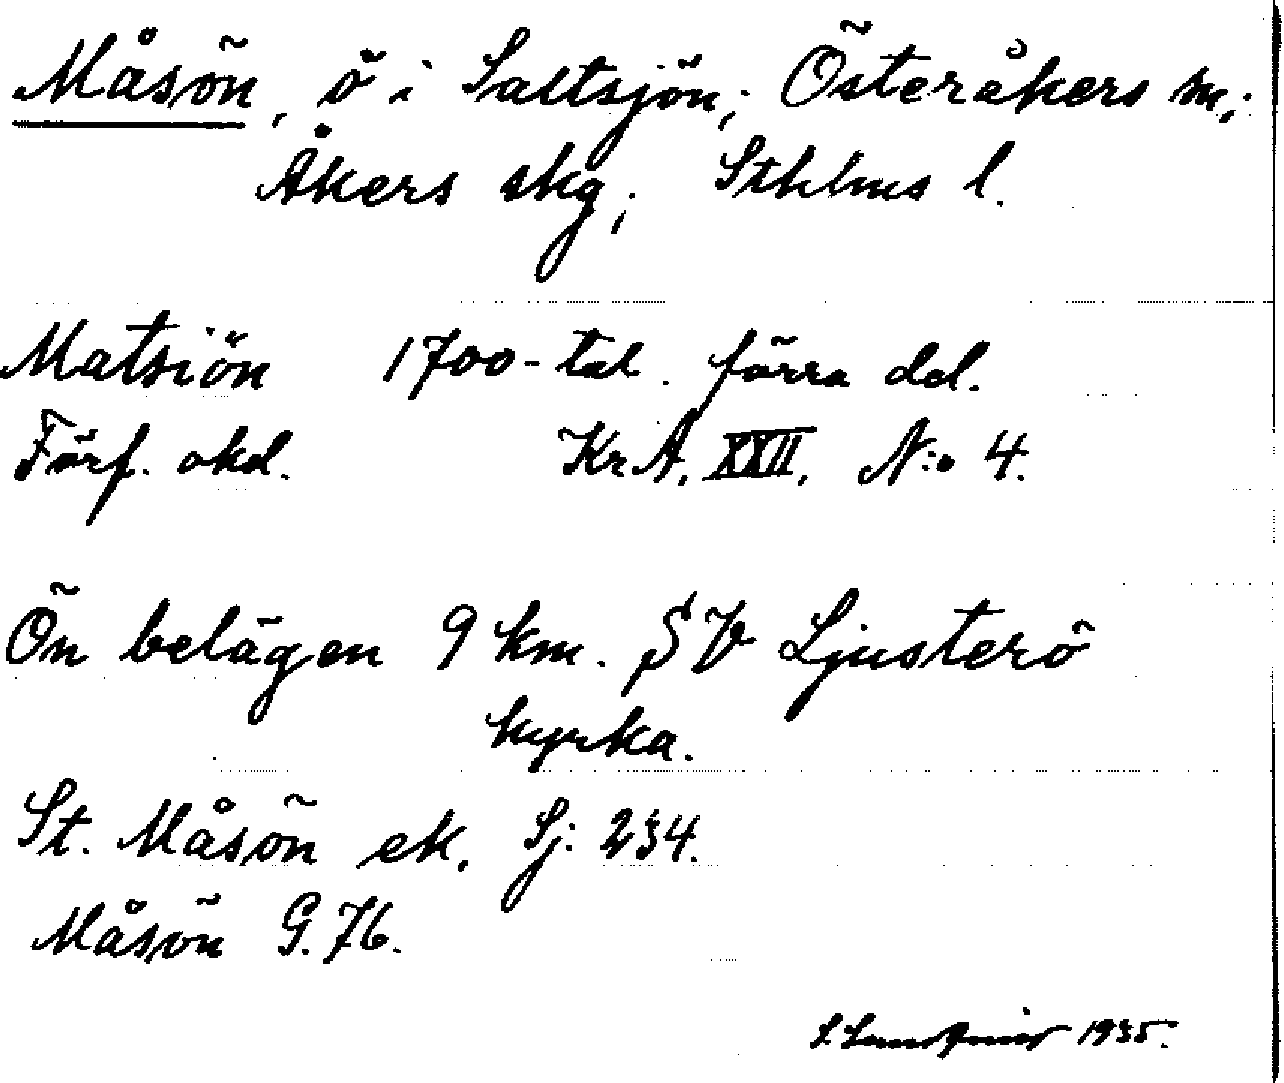 Måsön, ö i Saltsjön; Österåkers sn;
Åkers skg; Sthlms l.
Matsiön 1700-tal. förra del.
Förf. okd. Kr.A. XXII. N:o 4.
Ön belägen 9 km. SV Ljusterö
kyrka.
St. Måsön ek. Sj: 234.
Måsön G. 76.
S. Landqvist 1935.